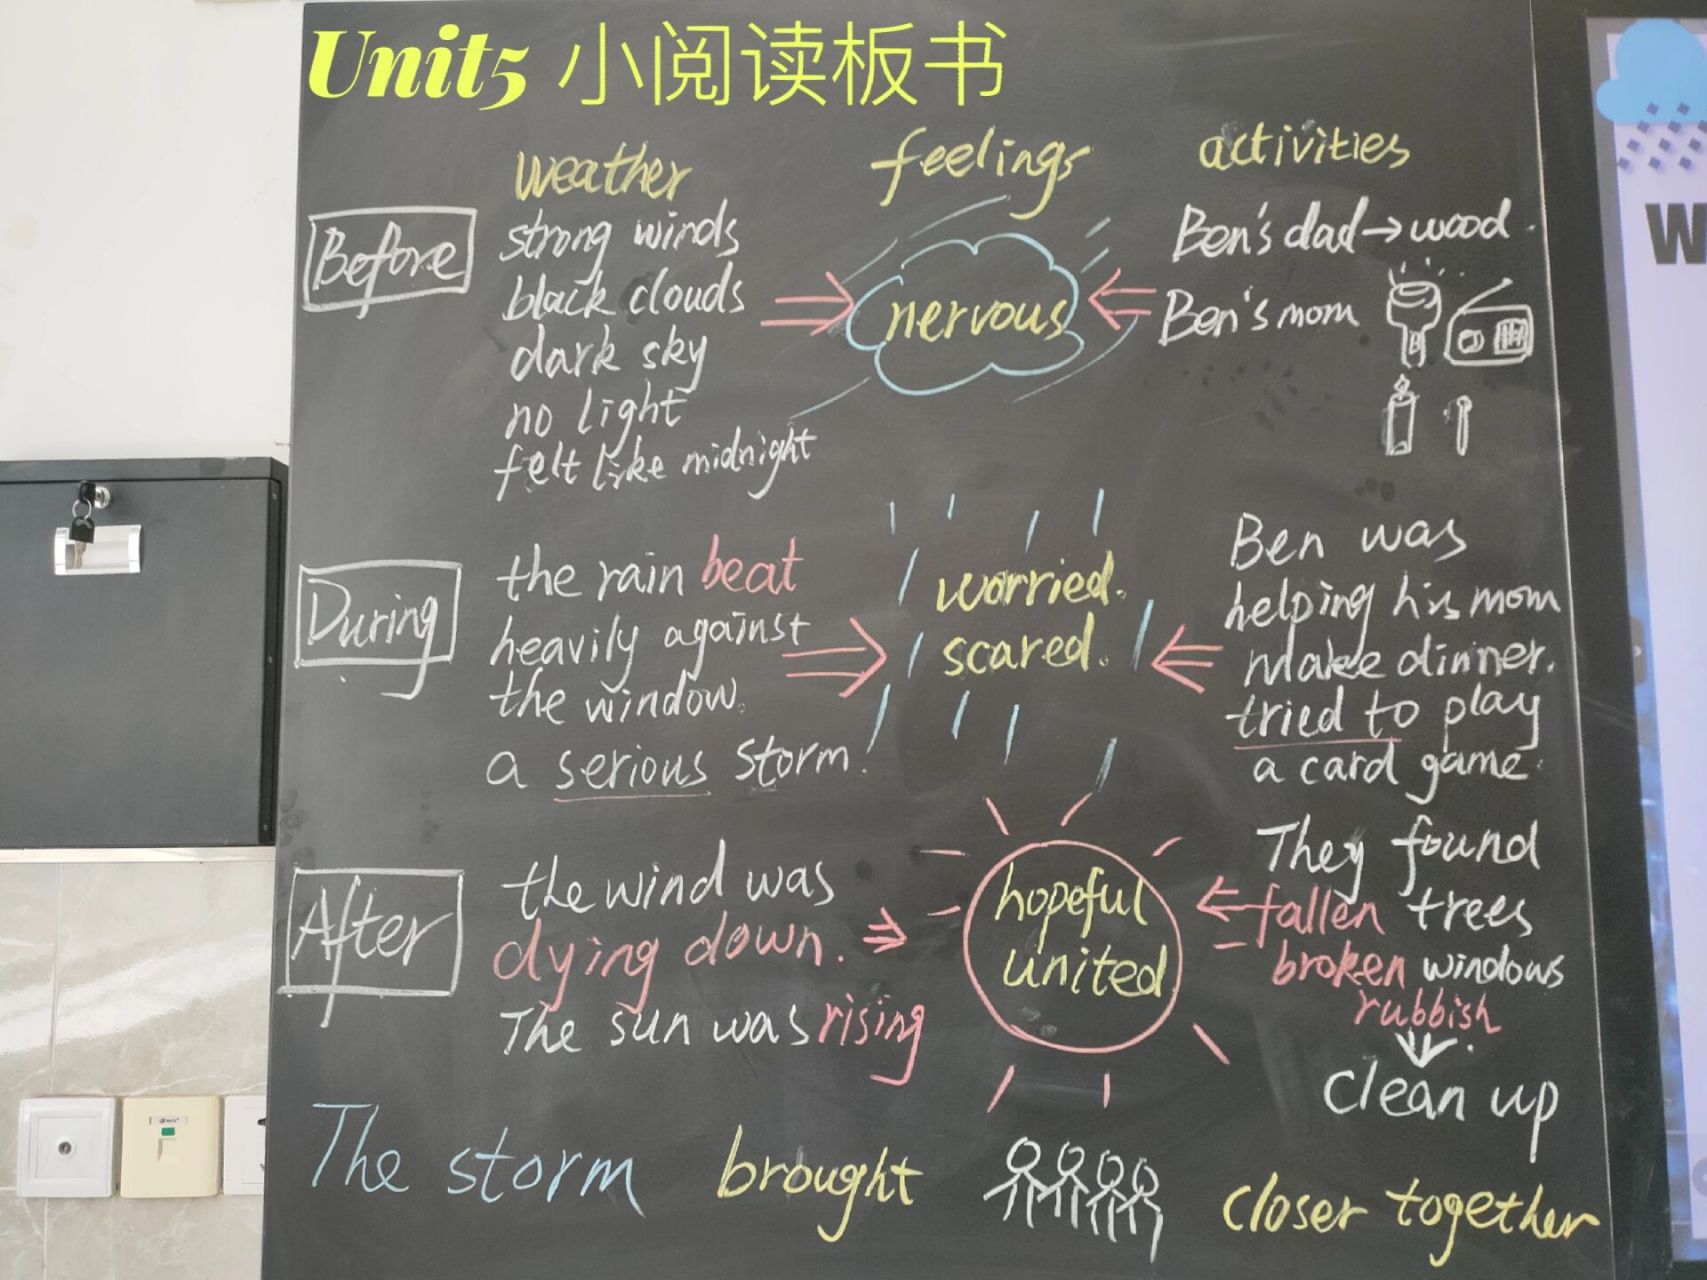 Unit5 小阅读板书
weather feelings activities
Before
strong winds
black clouds
dark sky
no light
felt like midnight
nervous
Ben's dad→wood.
Ben's mom
During
the rain beat
heavily against
the window.
a serious storm.
worried.
scared.
Ben was
helping his mom
make dinner.
tried to play
a card game.
After
the wind was
dying down.
The sun was rising
hopeful
united
They found
fallen trees
broken windows
rubbish
clean up
The storm brought closer together
W